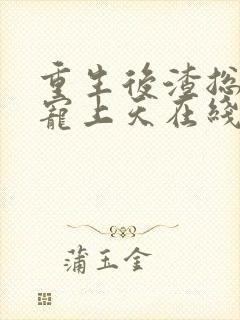 重生後渣總
寵上天在綫
蒲玉金